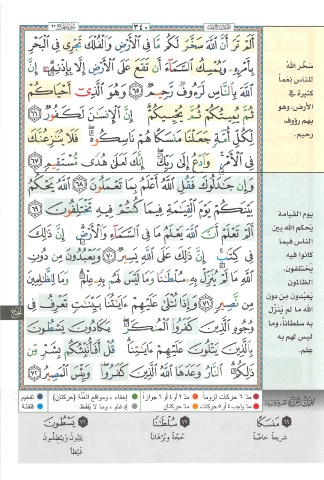 ٣٤٠
أَلَمْ تَرَ أَنَّ ٱللَّهَ سَخَّرَ لَكُم مَّا فِى ٱلْأَرْضِ وَٱلْفُلْكَ تَجْرِى فِى ٱلْبَحْرِ
بِأَمْرِهِۦ وَيُمْسِكُ ٱلسَّمَآءَ أَن تَقَعَ عَلَى ٱلْأَرْضِ إِلَّا بِإِذْنِهِۦٓ إِنَّ
ٱللَّهَ بِٱلنَّاسِ لَرَءُوفٌ رَّحِيمٌ ٦٥ وَهُوَ ٱلَّذِىٓ أَحْيَاكُمْ
ثُمَّ يُمِيتُكُمْ ثُمَّ يُحْيِيكُمْ إِنَّ ٱلْإِنسَٰنَ لَكَفُورٌ ٦٦
لِّكُلِّ أُمَّةٍ جَعَلْنَا مَنسَكًا هُمْ نَاسِكُوهُ فَلَا يُنَٰزِعُنَّكَ
فِى ٱلْأَمْرِ وَٱدْعُ إِلَىٰ رَبِّكَ إِنَّكَ لَعَلَىٰ هُدًى مُّسْتَقِيمٍ ٦٧
وَإِن جَٰدَلُوكَ فَقُلِ ٱللَّهُ أَعْلَمُ بِمَا تَعْمَلُونَ ٦٨ ٱللَّهُ يَحْكُمُ
بَيْنَكُمْ يَوْمَ ٱلْقِيَٰمَةِ فِيمَا كُنتُمْ فِيهِ تَخْتَلِفُونَ ٦٩
أَلَمْ تَعْلَمْ أَنَّ ٱللَّهَ يَعْلَمُ مَا فِى ٱلسَّمَآءِ وَٱلْأَرْضِ إِنَّ ذَٰلِكَ
فِى كِتَٰبٍ إِنَّ ذَٰلِكَ عَلَى ٱللَّهِ يَسِيرٌ ٧٠ وَيَعْبُدُونَ مِن دُونِ
ٱللَّهِ مَا لَمْ يُنَزِّلْ بِهِۦ سُلْطَٰنًا وَمَا لَيْسَ لَهُم بِهِۦ عِلْمٌ وَمَا لِلظَّٰلِمِينَ
مِن نَّصِيرٍ ٧١ وَإِذَا تُتْلَىٰ عَلَيْهِمْ ءَايَٰتُنَا بَيِّنَٰتٍ تَعْرِفُ فِى
وُجُوهِ ٱلَّذِينَ كَفَرُوا۟ ٱلْمُنكَرَ يَكَادُونَ يَسْطُونَ
بِٱلَّذِينَ يَتْلُونَ عَلَيْهِمْ ءَايَٰتِنَا قُلْ أَفَأُنَبِّئُكُم بِشَرٍّ مِّن
ذَٰلِكُمُ ٱلنَّارُ وَعَدَهَا ٱللَّهُ ٱلَّذِينَ كَفَرُوا۟ وَبِئْسَ ٱلْمَصِيرُ ٧٢
سخّر الله
للناس نِعماً
كثيرة في
الأرض، وهو
بهم رؤوف
رحيم.
يوم القيامة
يَحكم الله بين
الناس فيما
كانوا فيه
يختلفون.
الظالمون
يَعبُدون من دون
الله ما لم يُنَزِّل
به سلطاناً، وما
ليس لهم به
عِلم.
مدّ ٦ حركات لزوماً
مدّ ٢ أو ٤ أو ٦ جوازاً
إخفاء، ومواقع الغُنَّة (حركتان)
تفخيم
مدّ واجب ٤ أو ٥ حركات
مدّ حركتان
إدغام، وما لا يُلفَظ
قلقلة
٦٧ مَنسَكًا
شريعةً خاصَّةً
٧١ سُلْطَٰنًا
حُجَّةً وبُرْهَاناً
٧٢ يَسْطُونَ
يَثِبُونَ ويَبْطِشُونَ
غَيْظاً